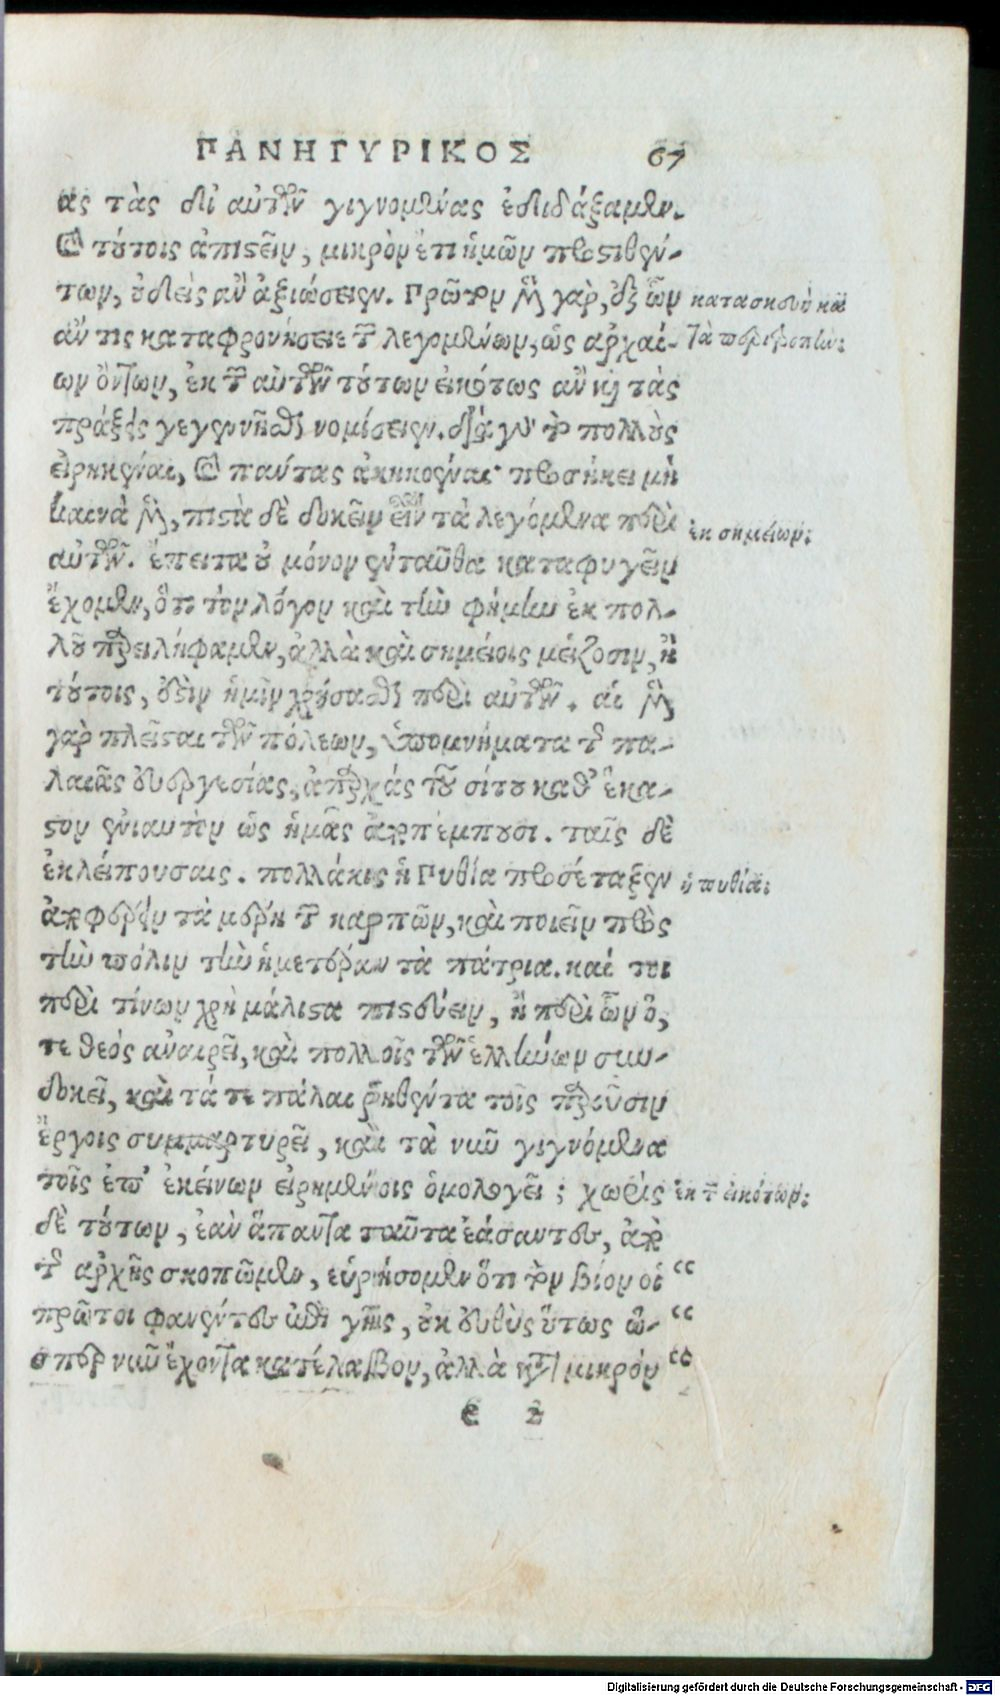 ΠΑΝΗΓΥΡΙΚΟΣ 67
ας τὰς δι' αὐτῶν γιγνομένας ἐδιδάξαμεν.
καὶ τούτοις ἀπιστεῖν, μικρὸν ἔτι ἡμῶν προστιθέν-
των, οὐδεὶς ἂν ἀξιώσειεν. Πρῶτον μὲν γὰρ, ἐξ ὧν
κατασκευὴ καὶ
ἄν τις καταφρονήσειε τῶν λεγομένων, ὡς ἀρχαί-
τὰ περὶ
ων ὄντων, ἐκ τῶν αὐτῶν τούτων εἰκότως ἂν καὶ τὰς
πράξεις γεγενῆσθαι νομίσειεν. διὰ γὰρ τὸ πολλοὺς
εἰρηκέναι, καὶ πάντας ἀκηκοέναι προσήκει μὴ
καινὰ μὲν, πιστὰ δὲ δοκεῖν εἶναι τὰ λεγόμενα περὶ
ἐκ σημείων:
αὐτῶν. ἔπειτα οὐ μόνον ἐνταῦθα καταφυγεῖν
ἔχομεν, ὅτι τὸν λόγον καὶ τὴν φήμην ἐκ πολ-
λοῦ παρειλήφαμεν, ἀλλὰ καὶ σημείοις μείζοσιν, ἢ
τούτοις, οὐδὲν ἡμῖν χρήσασθαι περὶ αὐτῶν. αἱ μὲν
γὰρ πλεῖσται τῶν πόλεων, ὑπομνήματα τῆς πα-
λαιᾶς εὐεργεσίας, ἀπαρχάς τοῦ σίτου καθ' ἕκα-
στον ἐνιαυτὸν ὡς ἡμᾶς ἀποπέμπουσι. ταῖς δὲ
ἐκλείπουσαις. πολλάκις ἡ Πυθία προσέταξεν
ἡ πυθία:
ἀποφέρειν τὰ μέρη τῶν καρπῶν, καὶ ποιεῖν πρὸς
τὴν πόλιν τὴν ἡμετέραν τὰ πάτρια. καί τοι
περὶ τίνων χρὴ μάλιστα πιστεύειν, ἢ περὶ ὧν ὅ,
τε θεός ἀναιρεῖ, καὶ πολλοῖς τῶν ἑλλήνων συν-
δοκεῖ, καὶ τά τε πάλαι ῥηθέντα τοῖς παροῦσιν
ἔργοις συμμαρτυρεῖ, καὶ τὰ νῦν γιγνόμενα
τοῖς ὑπ' ἐκείνων εἰρημένοις ὁμολογεῖ; χωρὶς
ἐκ τῶν εἰκότων:
δὲ τούτων, ἐὰν ἅπαντα ταῦτα ἐάσαντες, ἀπὸ
τῆς ἀρχῆς σκοπῶμεν, εὑρήσομεν ὅτι τὸν βίον οἱ “
πρῶτοι φανέντες ἐπὶ γῆς, οὐκ εὐθὺς οὕτως ὥ- “
σπερ νῦν ἔχοντα κατέλαβον, ἀλλὰ κατὰ μικρόν “
e 2
Digitalisierung gefördert durch die Deutsche Forschungsgemeinschaft - DFG